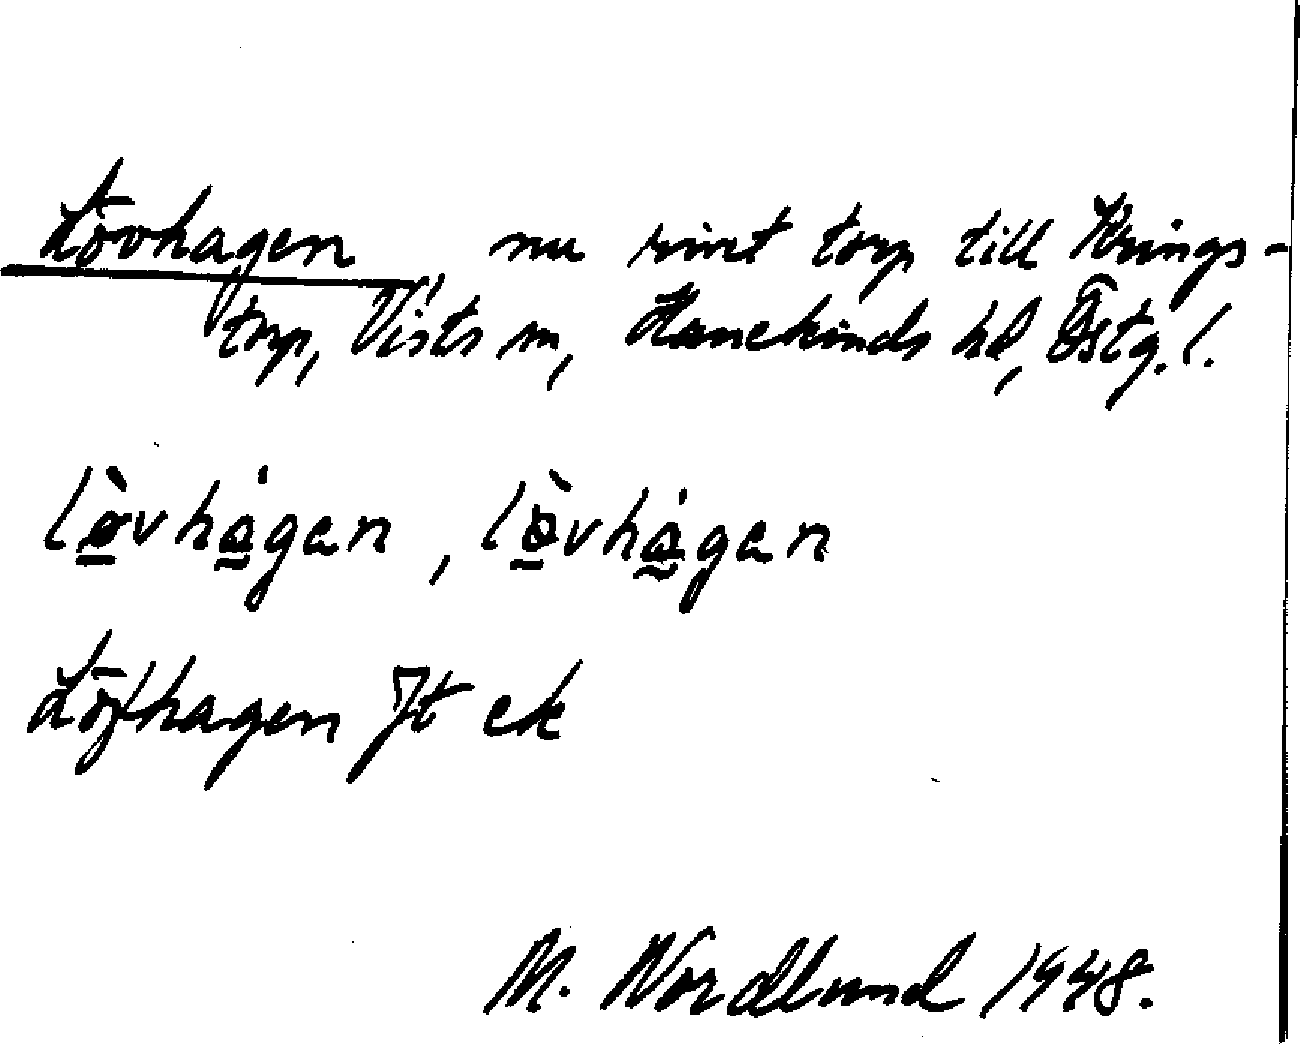 Lövhagen, nu rivet torp till Krings-
torp, Vists sn, Hanekinds hd, Östg. l.
lø̀vhågen, lø̀vhågen
Löfhagen Jt ek
M. Nordlund 1948.